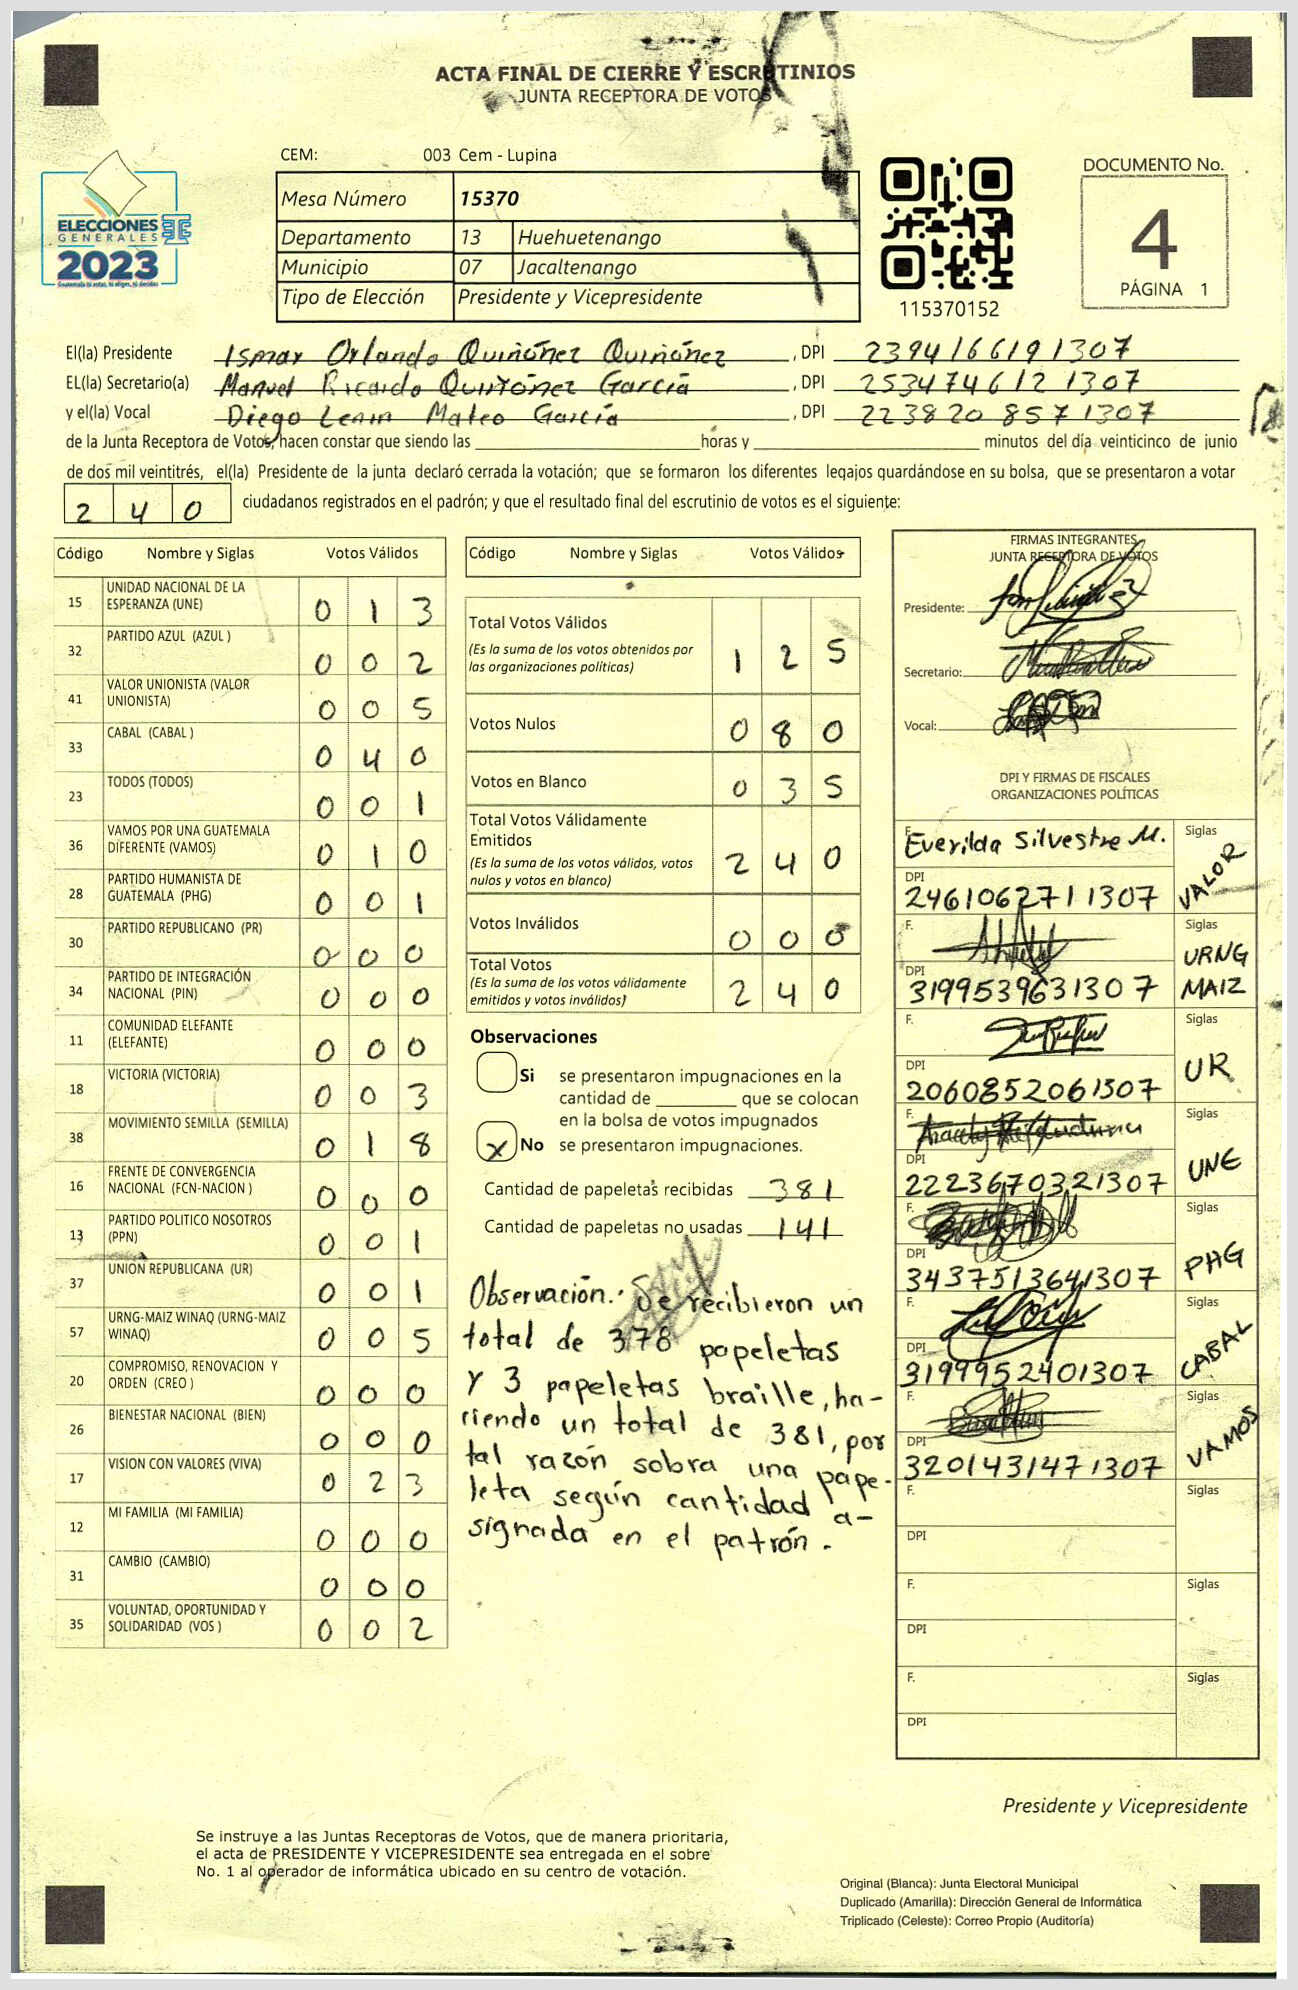 ACTA FINAL DE CIERRE Y ESCRUTINIOS
JUNTA RECEPTORA DE VOTOS
CEM: 003 Cem - Lupina
Mesa Número 15370
Departamento 13 Huehuetenango
Municipio 07 Jacaltenango
Tipo de Elección Presidente y Vicepresidente
ELECCIONES
GENERALES
2023
Guatemala tú estas, tú eliges, tú decides
115370152
DOCUMENTO No.
4
PÁGINA 1
El(la) Presidente Ismar Orlando Quiñónez Quiñónez , DPI 2394166191307
EL(la) Secretario(a) Manuel Ricardo Quiñónez García , DPI 2534746121307
y el(la) Vocal Diego Lenin Mateo García , DPI 2238208571307
de la Junta Receptora de Votos, hacen constar que siendo las horas y minutos del día veinticinco de junio
de dos mil veintitrés, el(la) Presidente de la junta declaró cerrada la votación; que se formaron los diferentes legajos quardándose en su bolsa, que se presentaron a votar
240 ciudadanos registrados en el padrón; y que el resultado final del escrutinio de votos es el siguiente:
Código Nombre y Siglas Votos Válidos
15 UNIDAD NACIONAL DE LA ESPERANZA (UNE) 0 1 3
32 PARTIDO AZUL (AZUL ) 0 0 2
41 VALOR UNIONISTA (VALOR UNIONISTA) 0 0 5
33 CABAL (CABAL ) 0 4 0
23 TODOS (TODOS) 0 0 1
36 VAMOS POR UNA GUATEMALA DIFERENTE (VAMOS) 0 1 0
28 PARTIDO HUMANISTA DE GUATEMALA (PHG) 0 0 1
30 PARTIDO REPUBLICANO (PR) 0 0 0
34 PARTIDO DE INTEGRACIÓN NACIONAL (PIN) 0 0 0
11 COMUNIDAD ELEFANTE (ELEFANTE) 0 0 0
18 VICTORIA (VICTORIA) 0 0 3
38 MOVIMIENTO SEMILLA (SEMILLA) 0 1 8
16 FRENTE DE CONVERGENCIA NACIONAL (FCN-NACION ) 0 0 0
13 PARTIDO POLITICO NOSOTROS (PPN) 0 0 1
37 UNION REPUBLICANA (UR) 0 0 1
57 URNG-MAIZ WINAQ (URNG-MAIZ WINAQ) 0 0 5
20 COMPROMISO, RENOVACION Y ORDEN (CREO ) 0 0 0
26 BIENESTAR NACIONAL (BIEN) 0 0 0
17 VISION CON VALORES (VIVA) 0 2 3
12 MI FAMILIA (MI FAMILIA) 0 0 0
31 CAMBIO (CAMBIO) 0 0 0
35 VOLUNTAD, OPORTUNIDAD Y SOLIDARIDAD (VOS ) 0 0 2
Código Nombre y Siglas Votos Válidos
Total Votos Válidos 1 2 5
(Es la suma de los votos obtenidos por
las organizaciones políticas)
Votos Nulos 0 8 0
Votos en Blanco 0 3 5
Total Votos Válidamente
Emitidos 2 4 0
(Es la suma de los votos válidos, votos
nulos y votos en blanco)
Votos Inválidos 0 0 0
Total Votos 2 4 0
(Es la suma de los votos válidamente
emitidos y votos inválidos)
Observaciones
Si se presentaron impugnaciones en la
cantidad de que se colocan
en la bolsa de votos impugnados
x No se presentaron impugnaciones.
Cantidad de papeletas recibidas 381
Cantidad de papeletas no usadas 141
Observación: Se recibieron un
total de 378 papeletas
y 3 papeletas braille, ha-
ciendo un total de 381, por
tal razón sobra una pape-
leta según cantidad a-
signada en el patrón.
FIRMAS INTEGRANTES
JUNTA RECEPTORA DE VOTOS
Presidente:
Secretario:
Vocal:
DPI Y FIRMAS DE FISCALES
ORGANIZACIONES POLÍTICAS
F. Everilda Silvestre M. Siglas VALOR
DPI 2461062711307
F. Siglas URNG MAIZ
DPI 3199539631307
F. Siglas UR
DPI 2060852061307
F. Siglas UNE
DPI 2223670321307
F. Siglas PHG
DPI 3437513641307
F. Siglas CABAL
DPI 3199952401307
F. Siglas VAMOS
DPI 3201431471307
F. Siglas
DPI
F. Siglas
DPI
F. Siglas
DPI
Presidente y Vicepresidente
Se instruye a las Juntas Receptoras de Votos, que de manera prioritaria,
el acta de PRESIDENTE Y VICEPRESIDENTE sea entregada en el sobre
No. 1 al operador de informática ubicado en su centro de votación.
Original (Blanca): Junta Electoral Municipal
Duplicado (Amarilla): Dirección General de Informática
Triplicado (Celeste): Correo Propio (Auditoría)